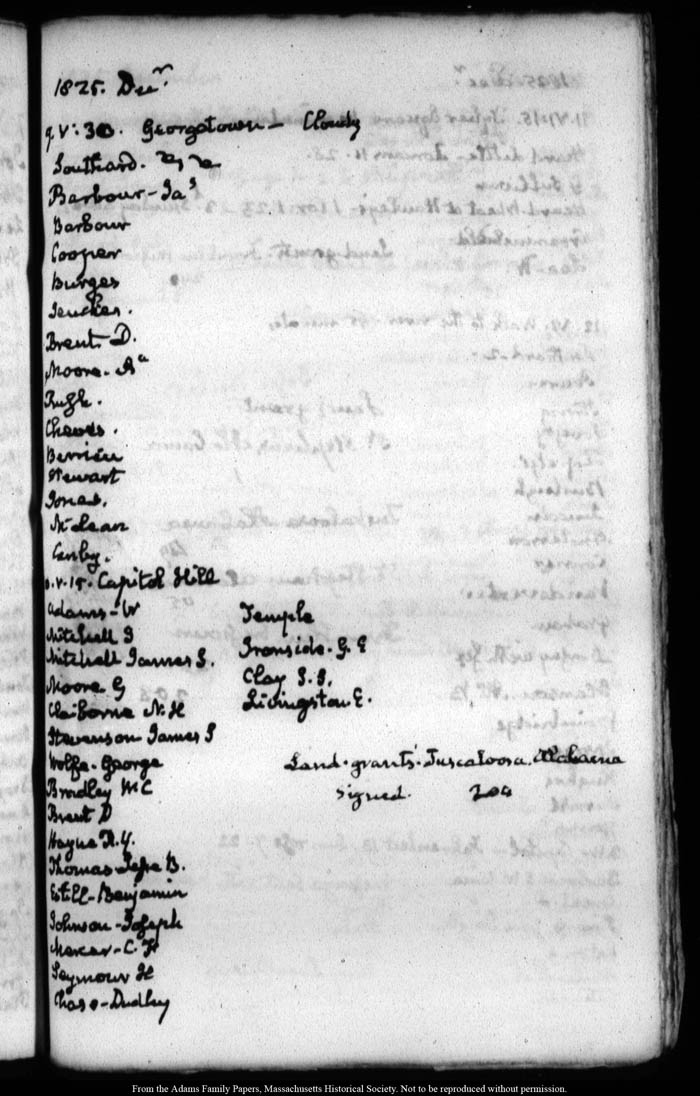 1825. Decr
9. V:30. Georgetown — Cloudy
Southard.
Barbour - Jas
Barbour
Cooper
Burges
Brent. D.
Moore. Aa
Rush.
Cheves.
Berrien
Stewart
Jones.
McLean
V.15. Capitol Hill
Adams - W
Mitchell J
Mitchell James S.
Moore G
Claiborne N. H
Stevenson James S
Wolfe. George
Bradley W C
Brent D
Hayne R. Y.
Thomas Jesse B.
Estill - Benjamin
Johnson - Joseph
Mercer - C. F
Seymour H
Chase - Dudley
Temple
Ironside. G. E
Clay J. J.
Livingston E.
Land. grants. Tuscaloosa. Alabama
signed. 204
From the Adams Family Papers, Massachusetts Historical Society. Not to be reproduced without permission.